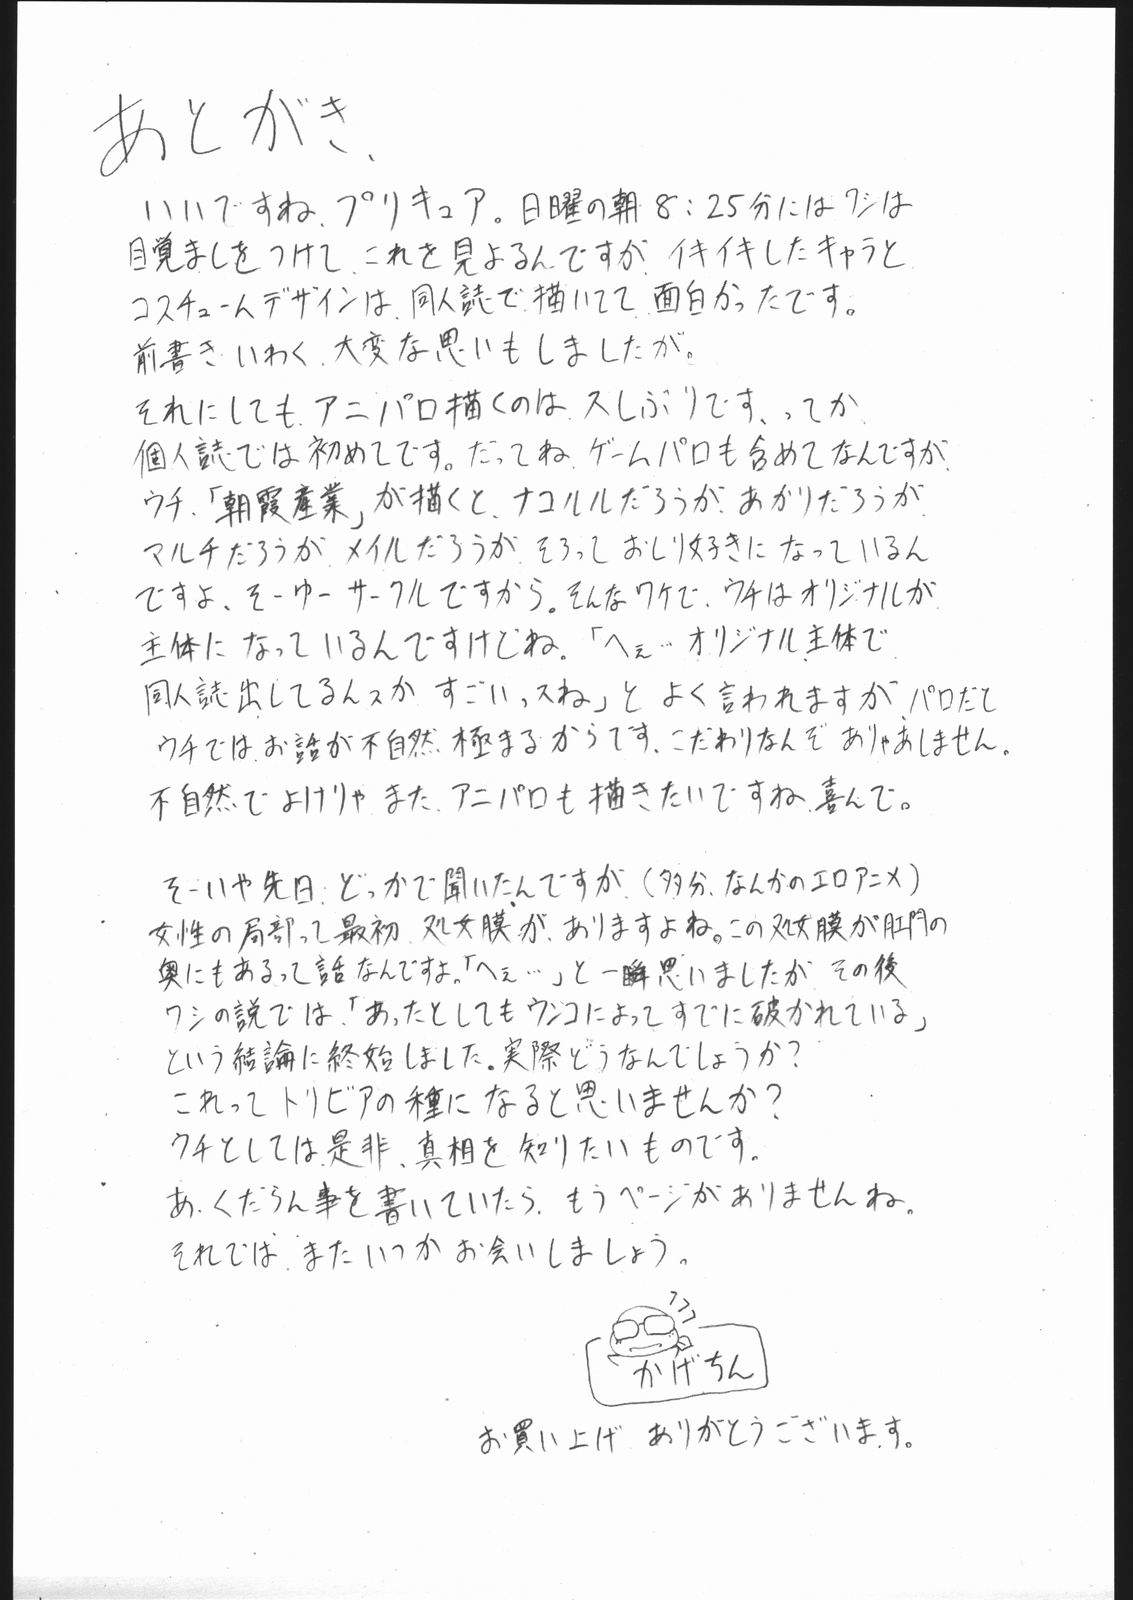 あとがき、
いいですね、プリキュア。日曜の朝8:25分にはワシは
目覚ましをつけて、これを見よるんですが、イキイキしたキャラと
コスチュームデザインは、同人誌で描いてて面白かったです。
前書きいわく、大変な思いもしましたが。
それにしても、アニパロ描くのは久しぶりです、ってか、
個人誌では初めてです。だってね、ゲームパロも含めてなんですが、
ウチ、「朝霞産業」が描くと、ナコルルだろうが、あかりだろうが、
マルチだろうが、メイルだろうが、そろっておしり好きになっているん
ですよ、そーゆーサークルですから。そんなワケで、ウチはオリジナルが
主体になっているんですけどね。「へぇ…オリジナル主体で
同人誌出してるんスか、すごいっスね」とよく言われますが、パロだと
ウチでは、お話が不自然極まるからです、こだわりなんぞありゃあしません。
不自然でよけりゃ、また、アニパロも描きたいですね、喜んで。
そーいや先日、どっかで聞いたんですが、(多分、なんかのエロアニメ)
女性の局部って最初、処女膜が、ありますよね。この処女膜が肛門の
奥にもあるって話なんですよ。「へぇ…」と一瞬思いましたが、その後
ワシの説では、「あったとしてもウンコによってすでに破かれている」
という結論に終始しました。実際どうなんでしょうか?
これってトリビアの種になると思いませんか?
ウチとしては是非、真相を知りたいものです。
あ、くだらん事を書いていたら、もうページがありませんね。
それでは、またいつかお会いしましょう。
かげちん
お買い上げ、ありがとうございます。